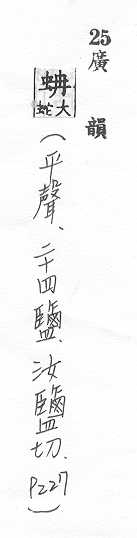 25廣韻
蚦大蛇
(平聲、二十四鹽、汝鹽切、P227)